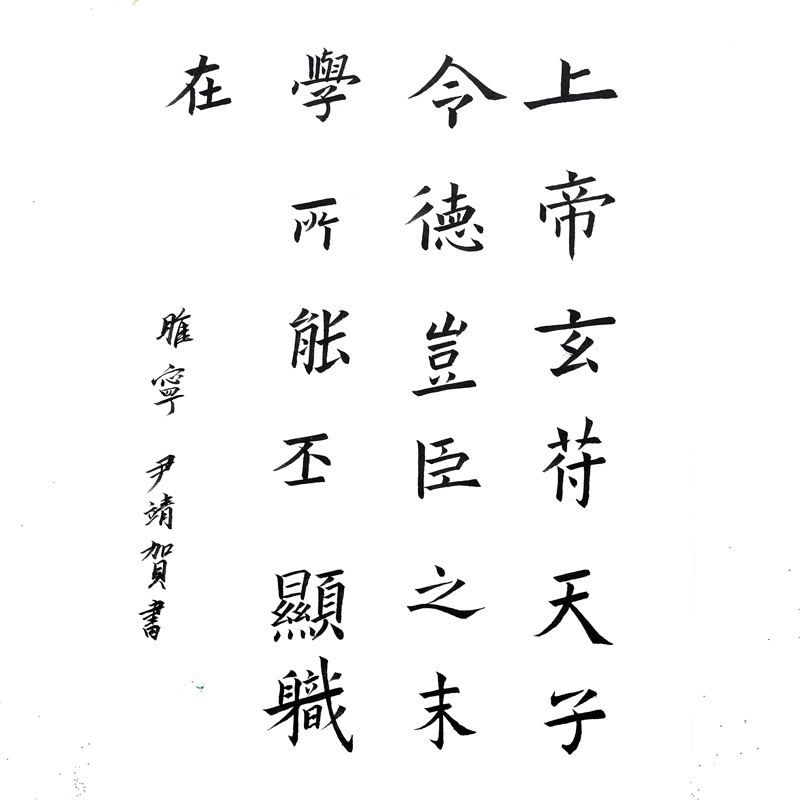 上帝玄苻天子
令德豈臣之末
學所能丕顯職
在
睢寧 尹靖賀書